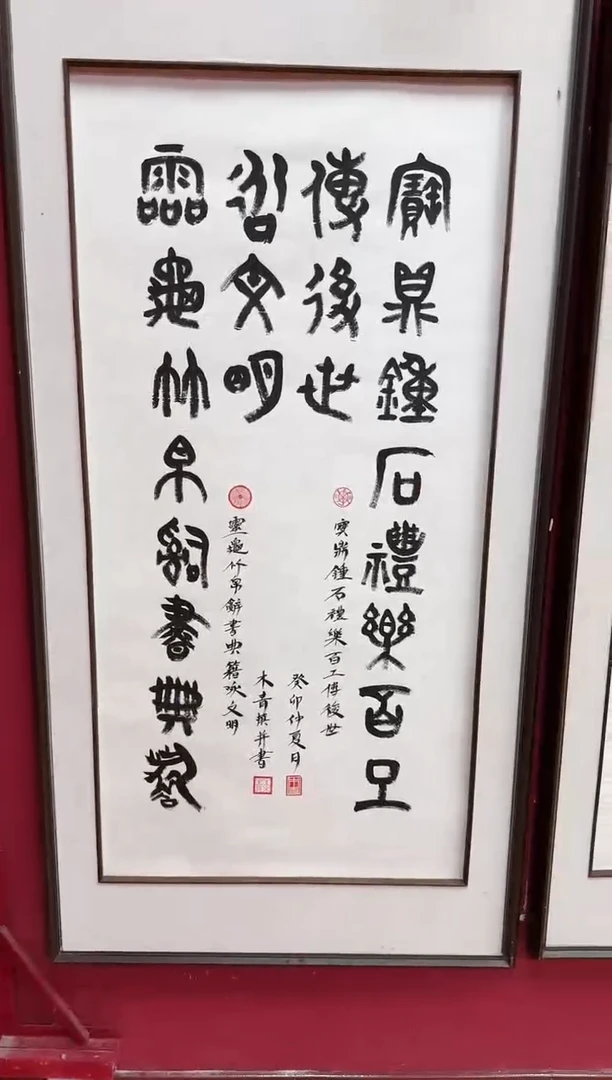 寶鼎鍾石禮樂百工
傳後世
靈龜竹帛辭書典籍
文明
寶鼎鍾石禮樂百工傳後世
癸卯仲夏月
靈龜竹帛辭書典籍文明
木青撰并書